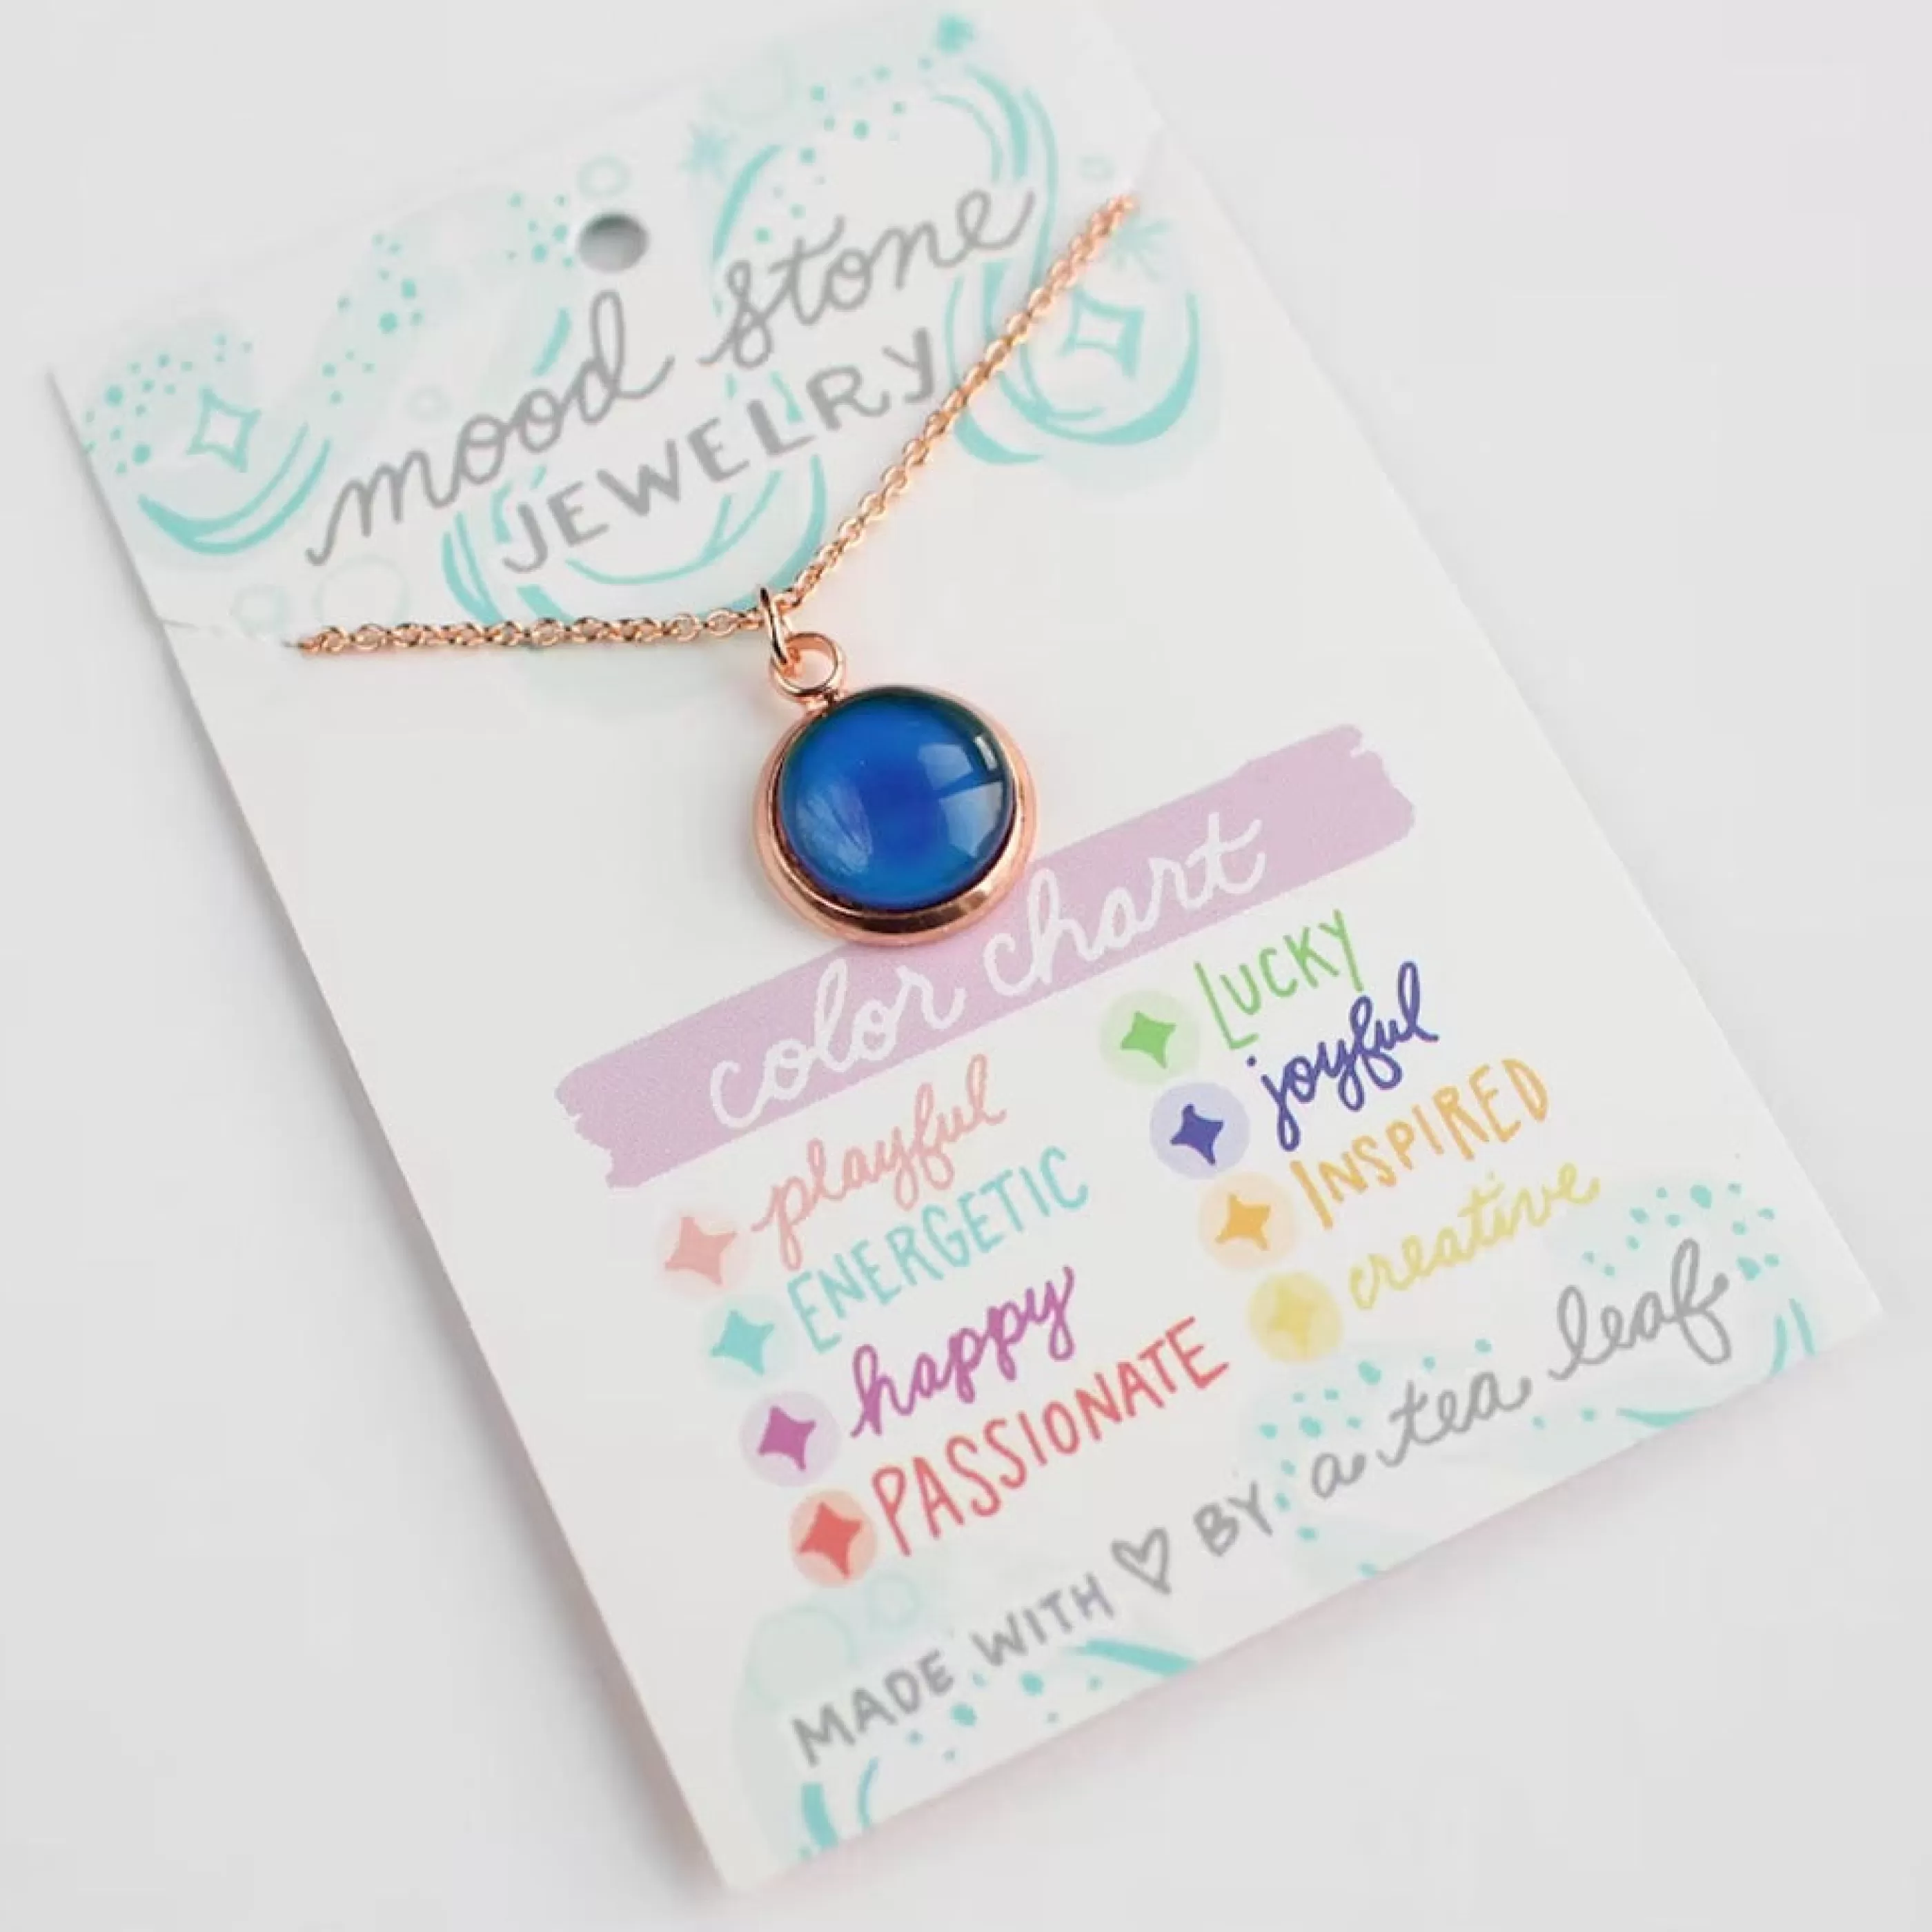 mood stone
JEWELRY
color chart
playful
ENERGETIC
happy
PASSIONATE
LUCKY
joyful
INSPIRED
creative
MADE WITH ♡ BY a tea leaf